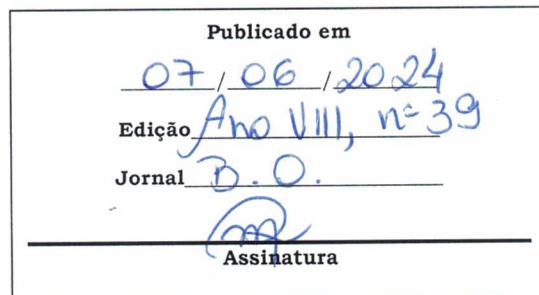 Publicado em
07 / 06 / 2024
Edição Ano VIII, nº 39
Jornal B.O.
Assinatura